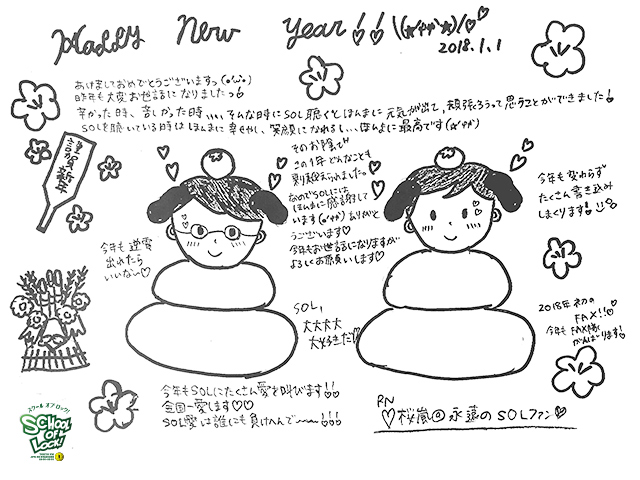 Happy New Year!! \(☆ヤヤ☆)/♡
2018.1.1
あけましておめでとうございますっ(｡･ω･｡)
昨年も大変お世話になりましたっ
辛かった時、苦しかった時、、、、そんな時にSOL聴くとほんまに元気が出て、頑張ろうって思うことができました!
SOLを聴いている時はほんまに幸せやし、笑顔になれるし、、ほんまに最高です(☆ヤヤ)
謹賀新年
そのお陰で
この1年どんなことも
乗り越えられました。
なのでSOLには
ほんまに感謝して
います(☆ヤヤ)ありがと
うございます♡
今年もお世話になりますが
よろしくお願いします♡
今年も変わらず
たくさん書き込み
しまくります!
今年も逆電
出れたら
いいな〜♡
SOL,
大大大大
大好きだ♡
2018年初の
FAX!!♡
今年もFAX隊
がんばります!
今年もSOLにたくさん愛を叫びます!!
全国一愛します♡♡
SOL愛は誰にも負けへんで〜〜!!!
RN
♡桜嵐@永遠のSOLファン♡
スクール オブ ロック!
SCHOOL OF LOCK!